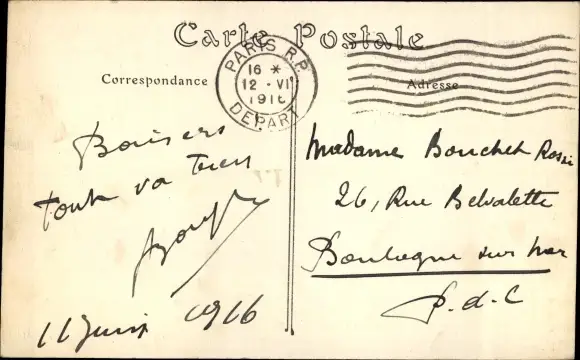 Carte Postale
Correspondance
Adresse
PARIS R.P.
16 *
12 - VI
1916
DEPART
Baisers
Tout va bien
11 Juin 1916
Madame Bouchet Rossi
26, Rue Belvalette
Boulogne sur Mer
P. d. C